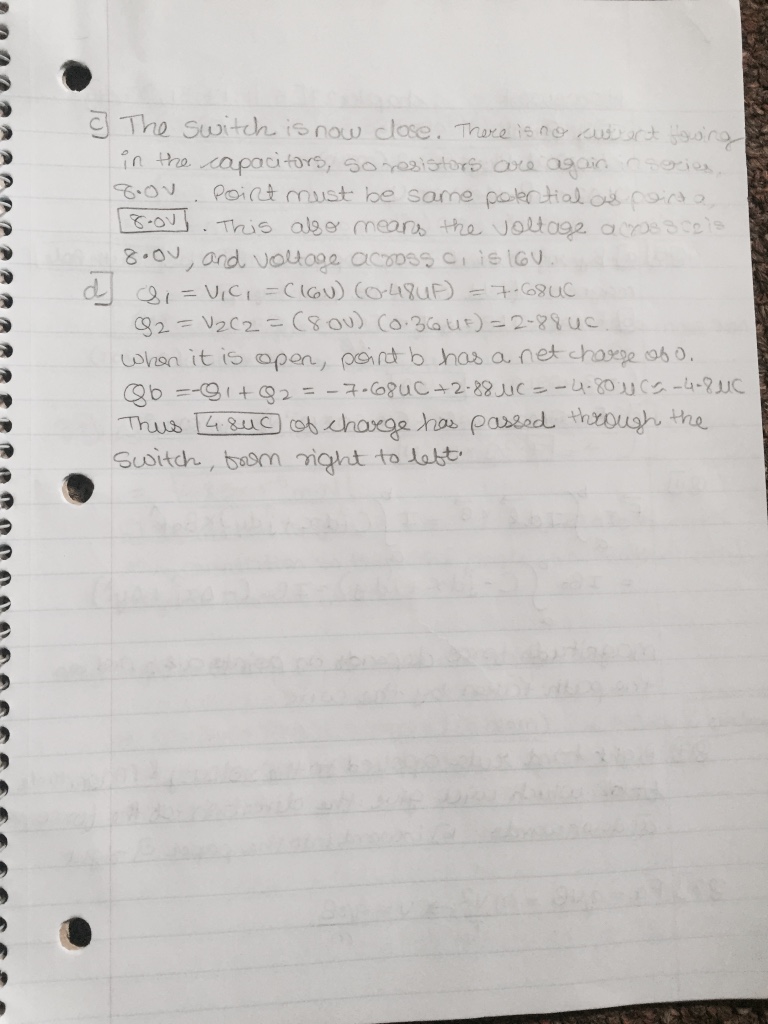 c] The switch is now close. There is no current foving
in the capacitors, so resistors are again n series,
8.0V. Point must be same potential as point a,
8.0V. This also means the voltage across is
8.0V, and voltage across C1 is 16V.
d] Q1 = V1C1 = (16V) (0.48uF) = 7.68uC
Q2 = V2C2 = (8.0V) (0.36uF) = 2.88uC.
When it is open, point b has a net charge of 0.
Qb = -Q1 + Q2 = -7.68uC + 2.88uC = -4.80uC = -4.8uC
Thus 4.8uC of charge has passed through the
switch, from right to left.